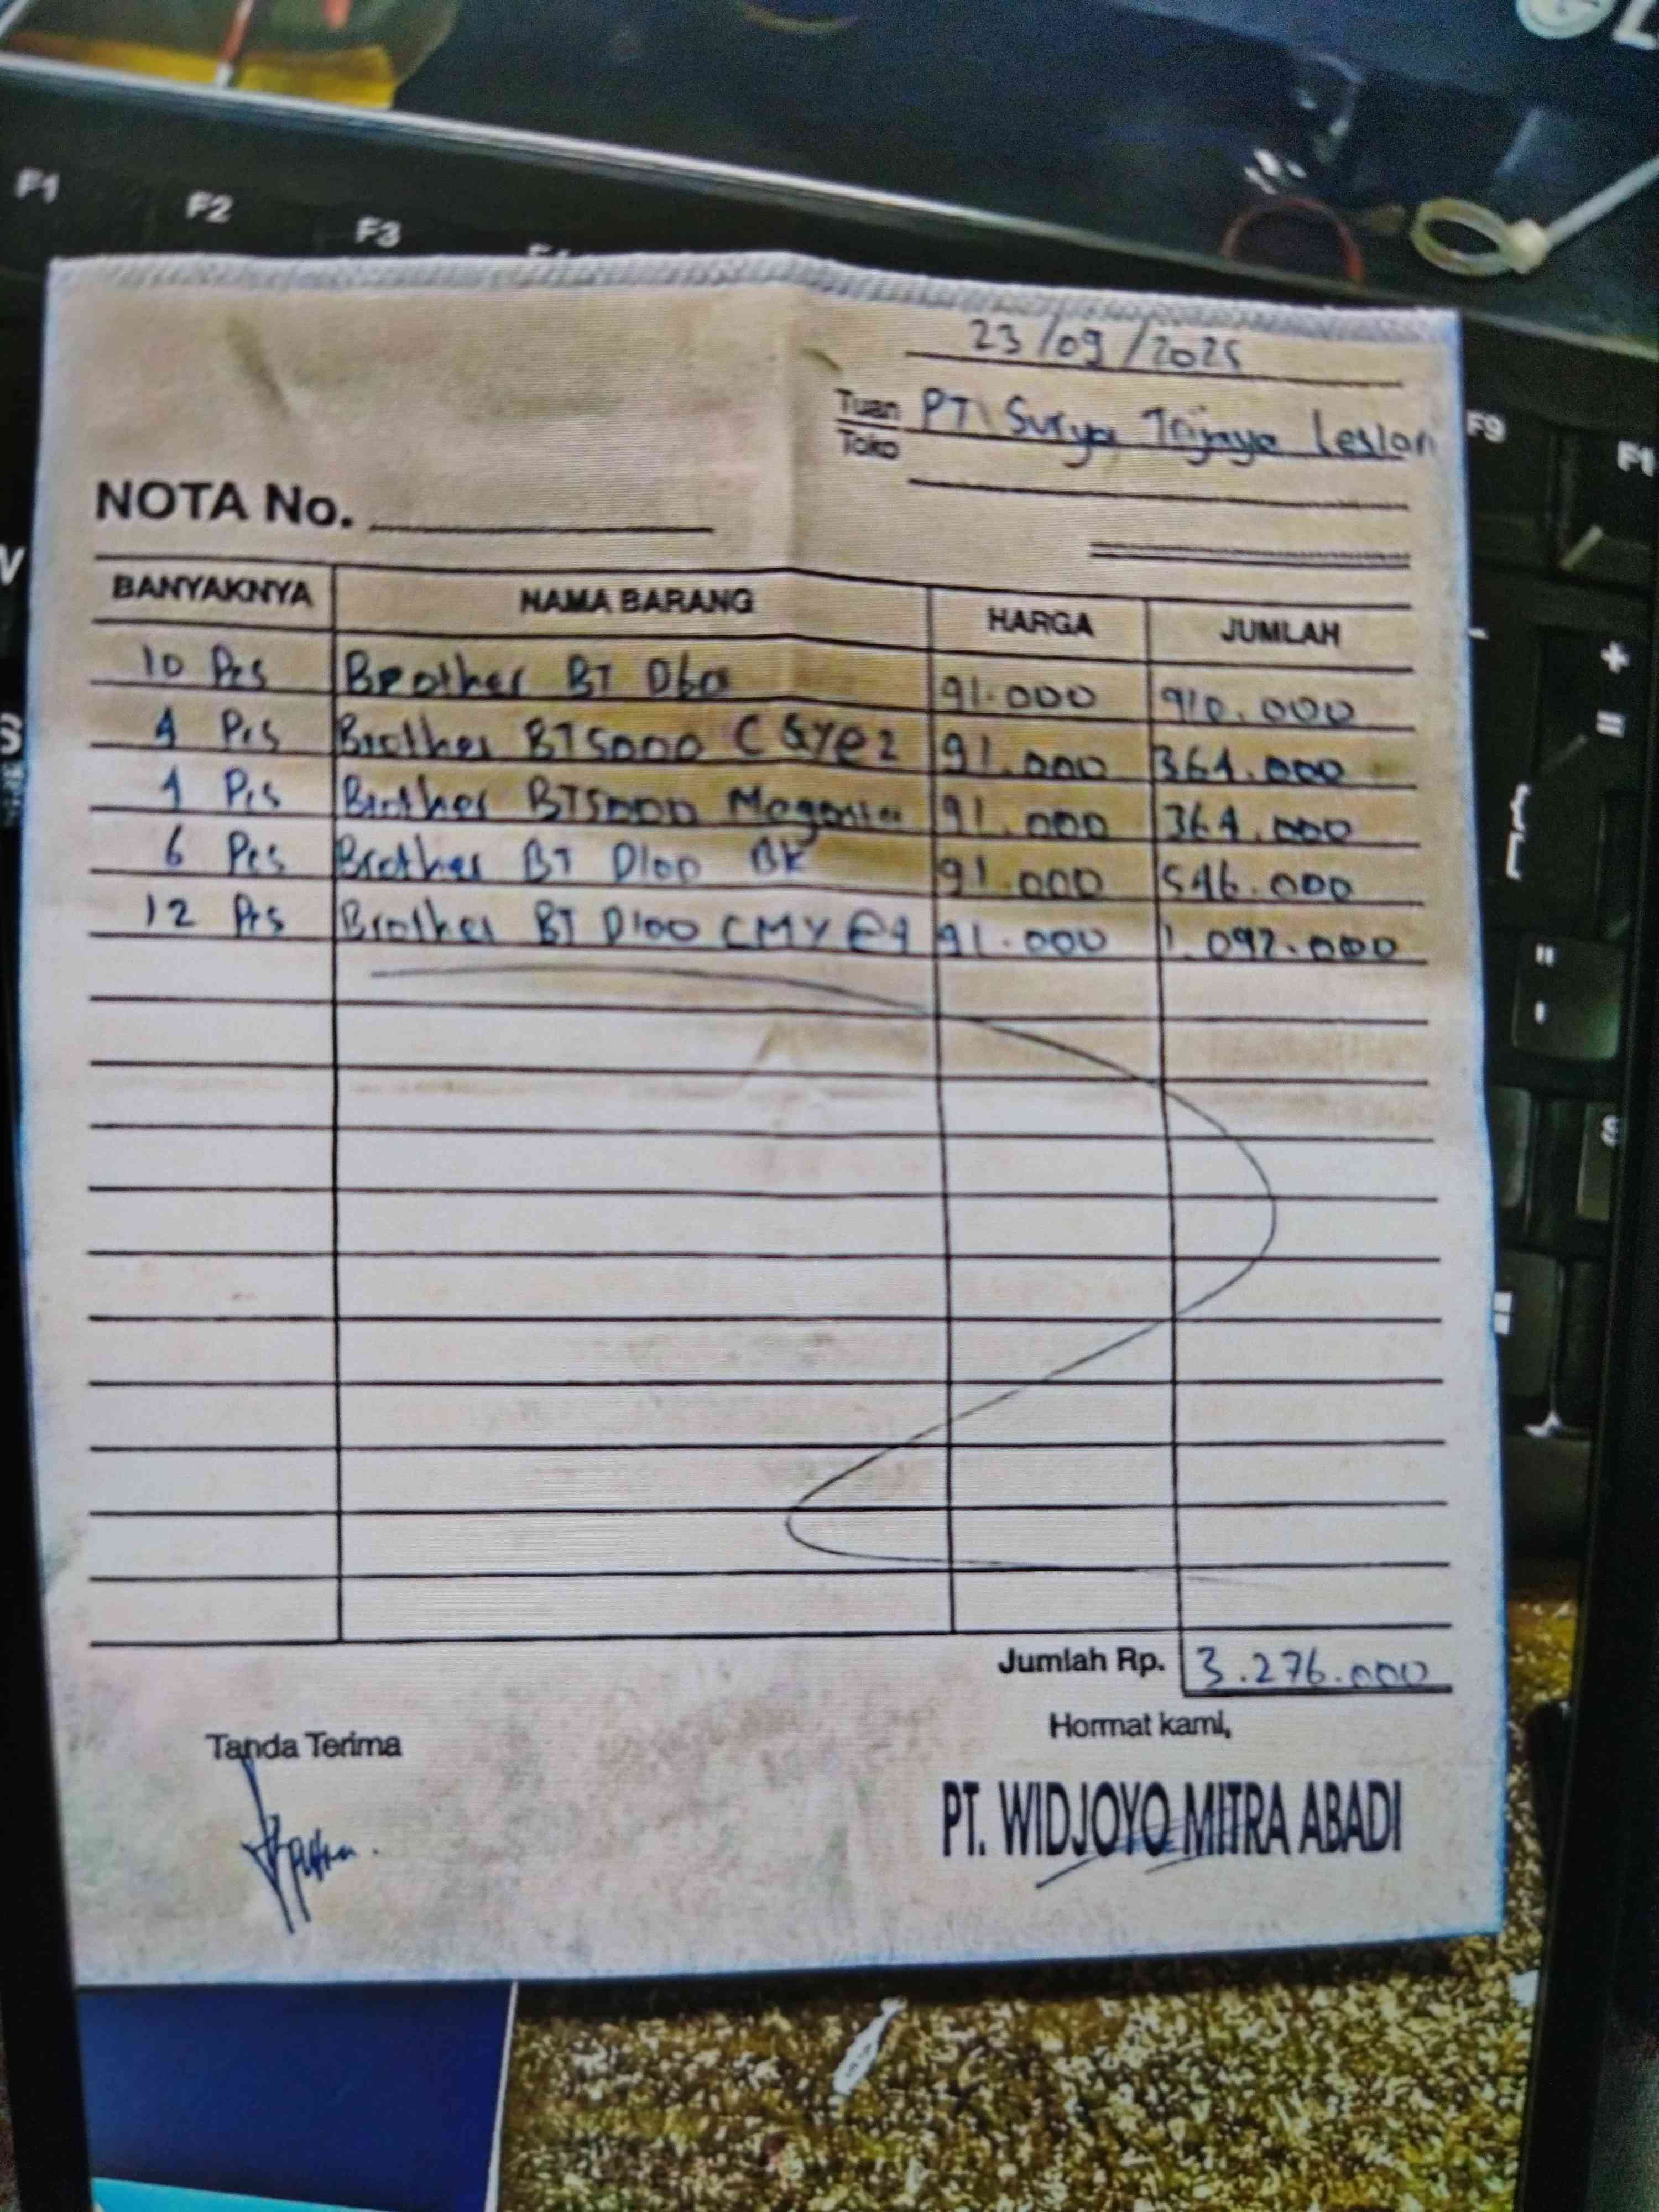 F1
F2
F3
F9
23/09/2025
Tuan
Toko
PT Surya Trijaya Lestari
NOTA No.
BANYAKNYA NAMA BARANG HARGA JUMLAH
10 Pcs Brother BT D60 91.000 910.000
4 Pcs Brother BT5000 C &Y @2 91.000 364.000
4 Pcs Brother BT5000 Magenta 91.000 364.000
6 Pcs Brother BT D100 BK 91.000 546.000
12 Pcs Brother BT D100 CMY @4 91.000 1.092.000
Jumlah Rp. 3.276.000
Tanda Terima
Hormat kami,
PT. WIDJOYO MITRA ABADI